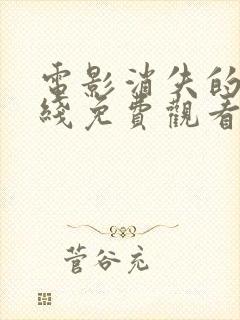 電影消失的
綫免費觀看
菅谷充